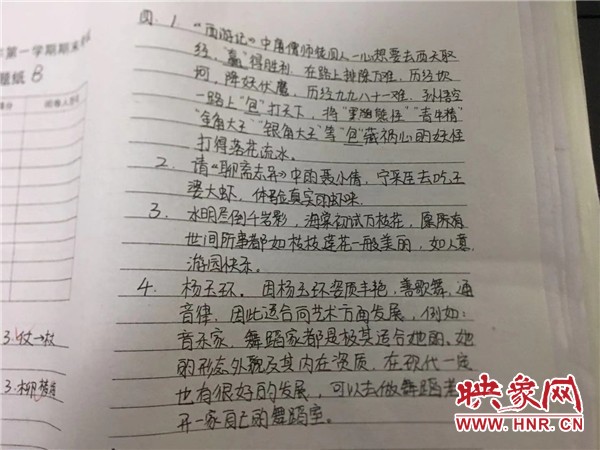 年第一学期期末
题纸 B
四. 1. 《西游记》中唐僧师徒四人一心想要去西天取
经, "赢"得胜利. 在路上排除万难, 历经坎
坷, 降妖伏魔, 历经九九八十一难. 孙悟空
一路上"包"打天下, 将"黑熊怪" "青牛精"
"金角大王" "银角大王"等"包"藏祸心的妖怪
打得落花流水。
2. 请《聊斋志异》中的聂小倩, 宁采臣去吃王
婆大虾, 体验真实的虾味.
3. 水明尽倒千岩影, 海棠初试万枝花, 愿所有
世间所事都如枝枝莲花一般美丽, 如人意
游园快乐.
4. 杨玉环. 因杨玉环姿质丰艳, 善歌舞, 通
音律, 因此适合向艺术方面发展, 例如:
音乐家、舞蹈家都是极其适合她的. 她
的形态外貌及其内在资质, 在现代一定
也有很好的发展, 可以去做舞蹈老
开一家自己的舞蹈室。
3.
3.柳
映象网
WWW.HNR.CN